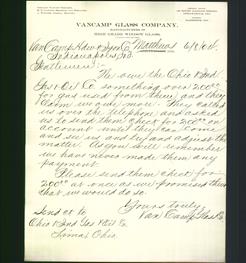 VANCAMP GLASS COMPANY,
MANUFACTURERS OF
HIGH GRADE WINDOW GLASS.
Van Camp Hdw & Iron Co. Matthews 6/9/04.
Indianapolis, Ind.
Gentlemen:-
We owe the Ohio & Ind.
Gas & Oil Co. something over $200.00
for gas used from them and they
claim we owe more. They called
us over the telephone and asked
us to send them check for $200.00 on
account until they can come
and see us and talk over the
matter. As you will remember
we have never made them any
payment.
Please send them check for
$200.00 at once as we promised them
that we would do so.
Yours truly,
Van Camp Glass Co.
Send it to
Ohio & Ind Gas & Oil Co
Lima, Ohio.